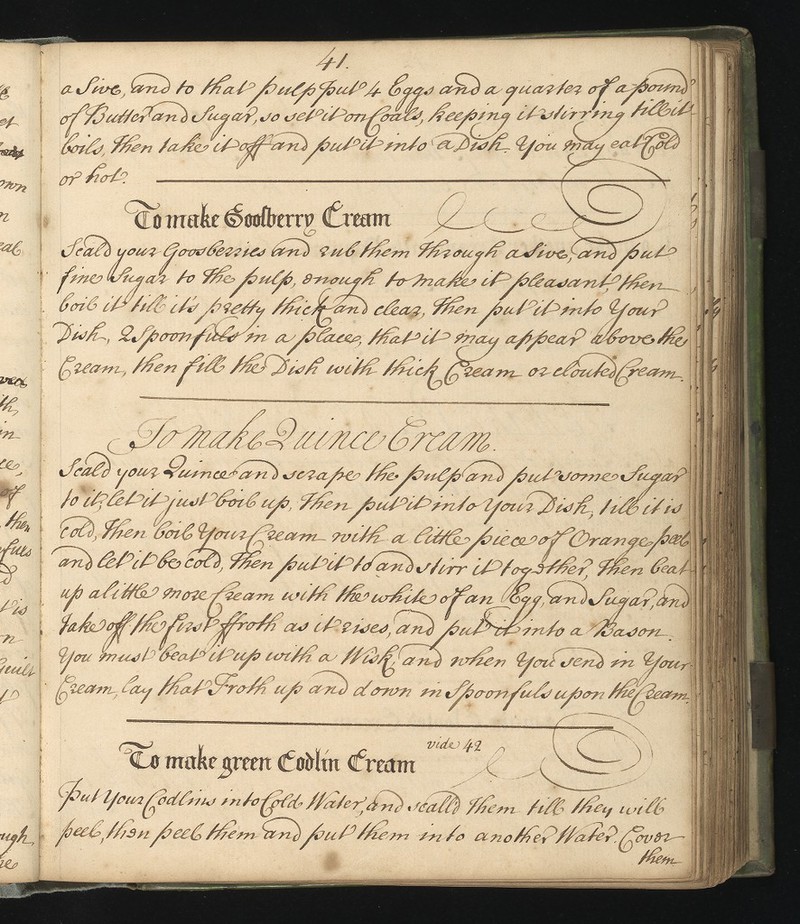 41.
a Sive, and to that pulp put 4 Eggs and a quarter of a pound
of Butter and Sugar, so set it on Coals, keeping it stirring till it
boils, then take it off and put it into a Dish. You may eat Cold
or hot.
To make Goosberry Cream
Scald your Goosberries and rub them through a Sive, and put
fine Sugar to the pulp, enough to make it pleasant, then
boil it till it's pretty thick and clear, then put it into Your
Dish, 2 Spoonfuls in a place, that it may appear above the
Cream, then fill the Dish with thick Cream or clouted Cream.
To make Quince Cream.
Scald your Quince and scrape the pulp and put some Sugar
to it, let it just boil up, Then put it into Your Dish, till it is
cold, Then boil Your Cream with a little piece of Orange peel
and let it be cold, then put it to and stirr it together, Then beat
up a little more Cream with the white of an Egg, and Sugar, and
take off the first ffroth as it rises, and put it into a Bason.
You must beat it up with a Wisk, and when You send in Your
Cream, lay that Froth up and down in Spoonfuls upon the Cream.
To make green Codlin Cream vide 42
Put Your Codlins into Cold Water, and scalld Them till they will
peel, then peel them and put them into another Water. Cover
them